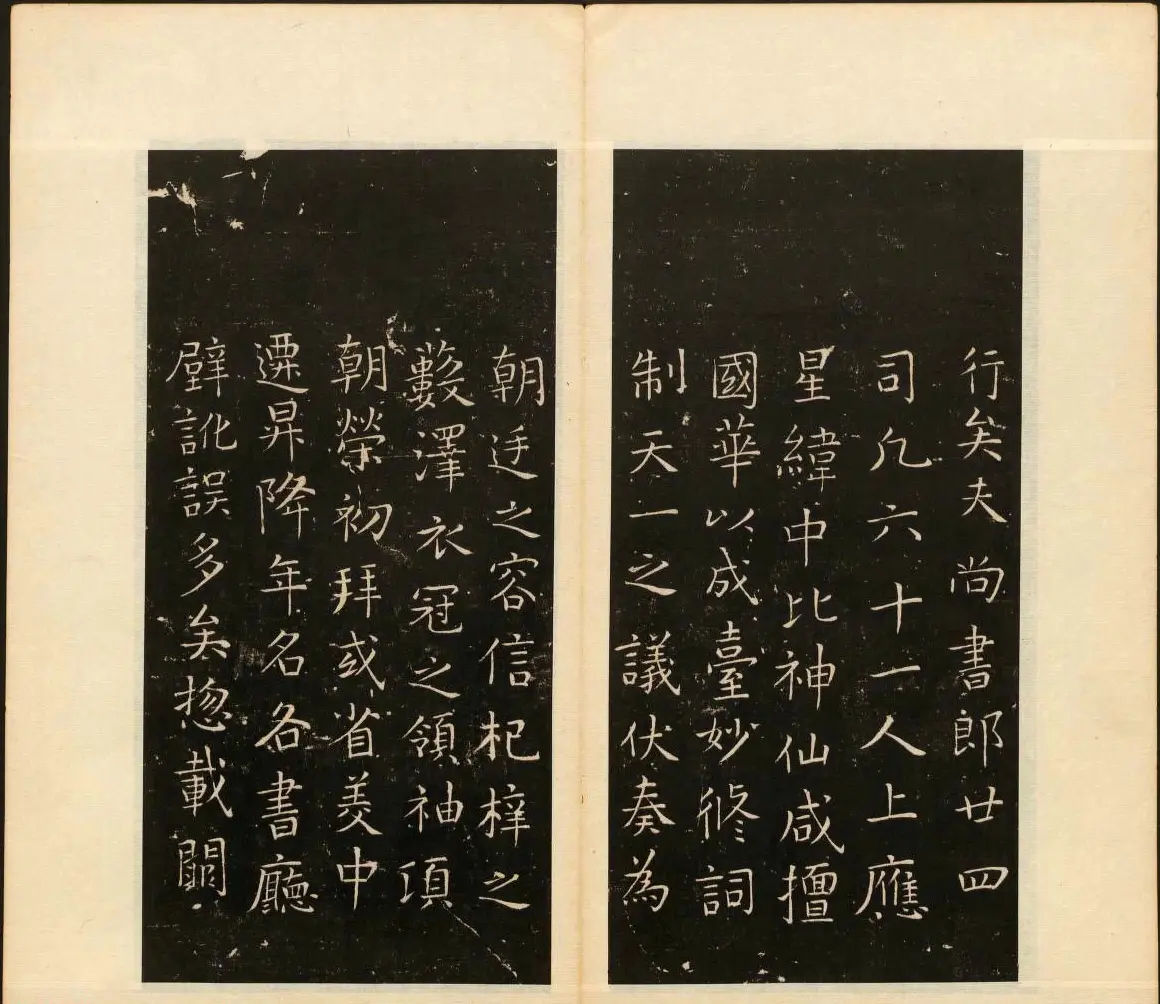 行矣夫尚書郎廿四
司凡六十一人上應
星緯中比神仙咸擅
國華以成臺妙修詞
制天一之議伏奏為
朝廷之容信杞梓之
藪澤衣冠之領袖項
朝榮初拜或省美中
遷昇降年名各書廳
壁訛誤多矣惣載闕